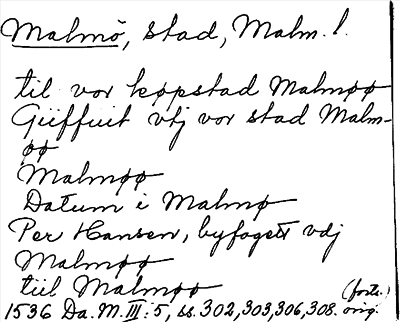 Malmö, stad, Malm. l.
til vor køpstad Malmøø
Giiffuit vtj vor stad Malm-
øø
Malmøø
Datum i Malmø
Per Hansen, byfogett vdj
Malmøø
tiil Malmøø
(forts.)
1536 Da. M. III: 5, ss. 302, 303, 306, 308. orig.